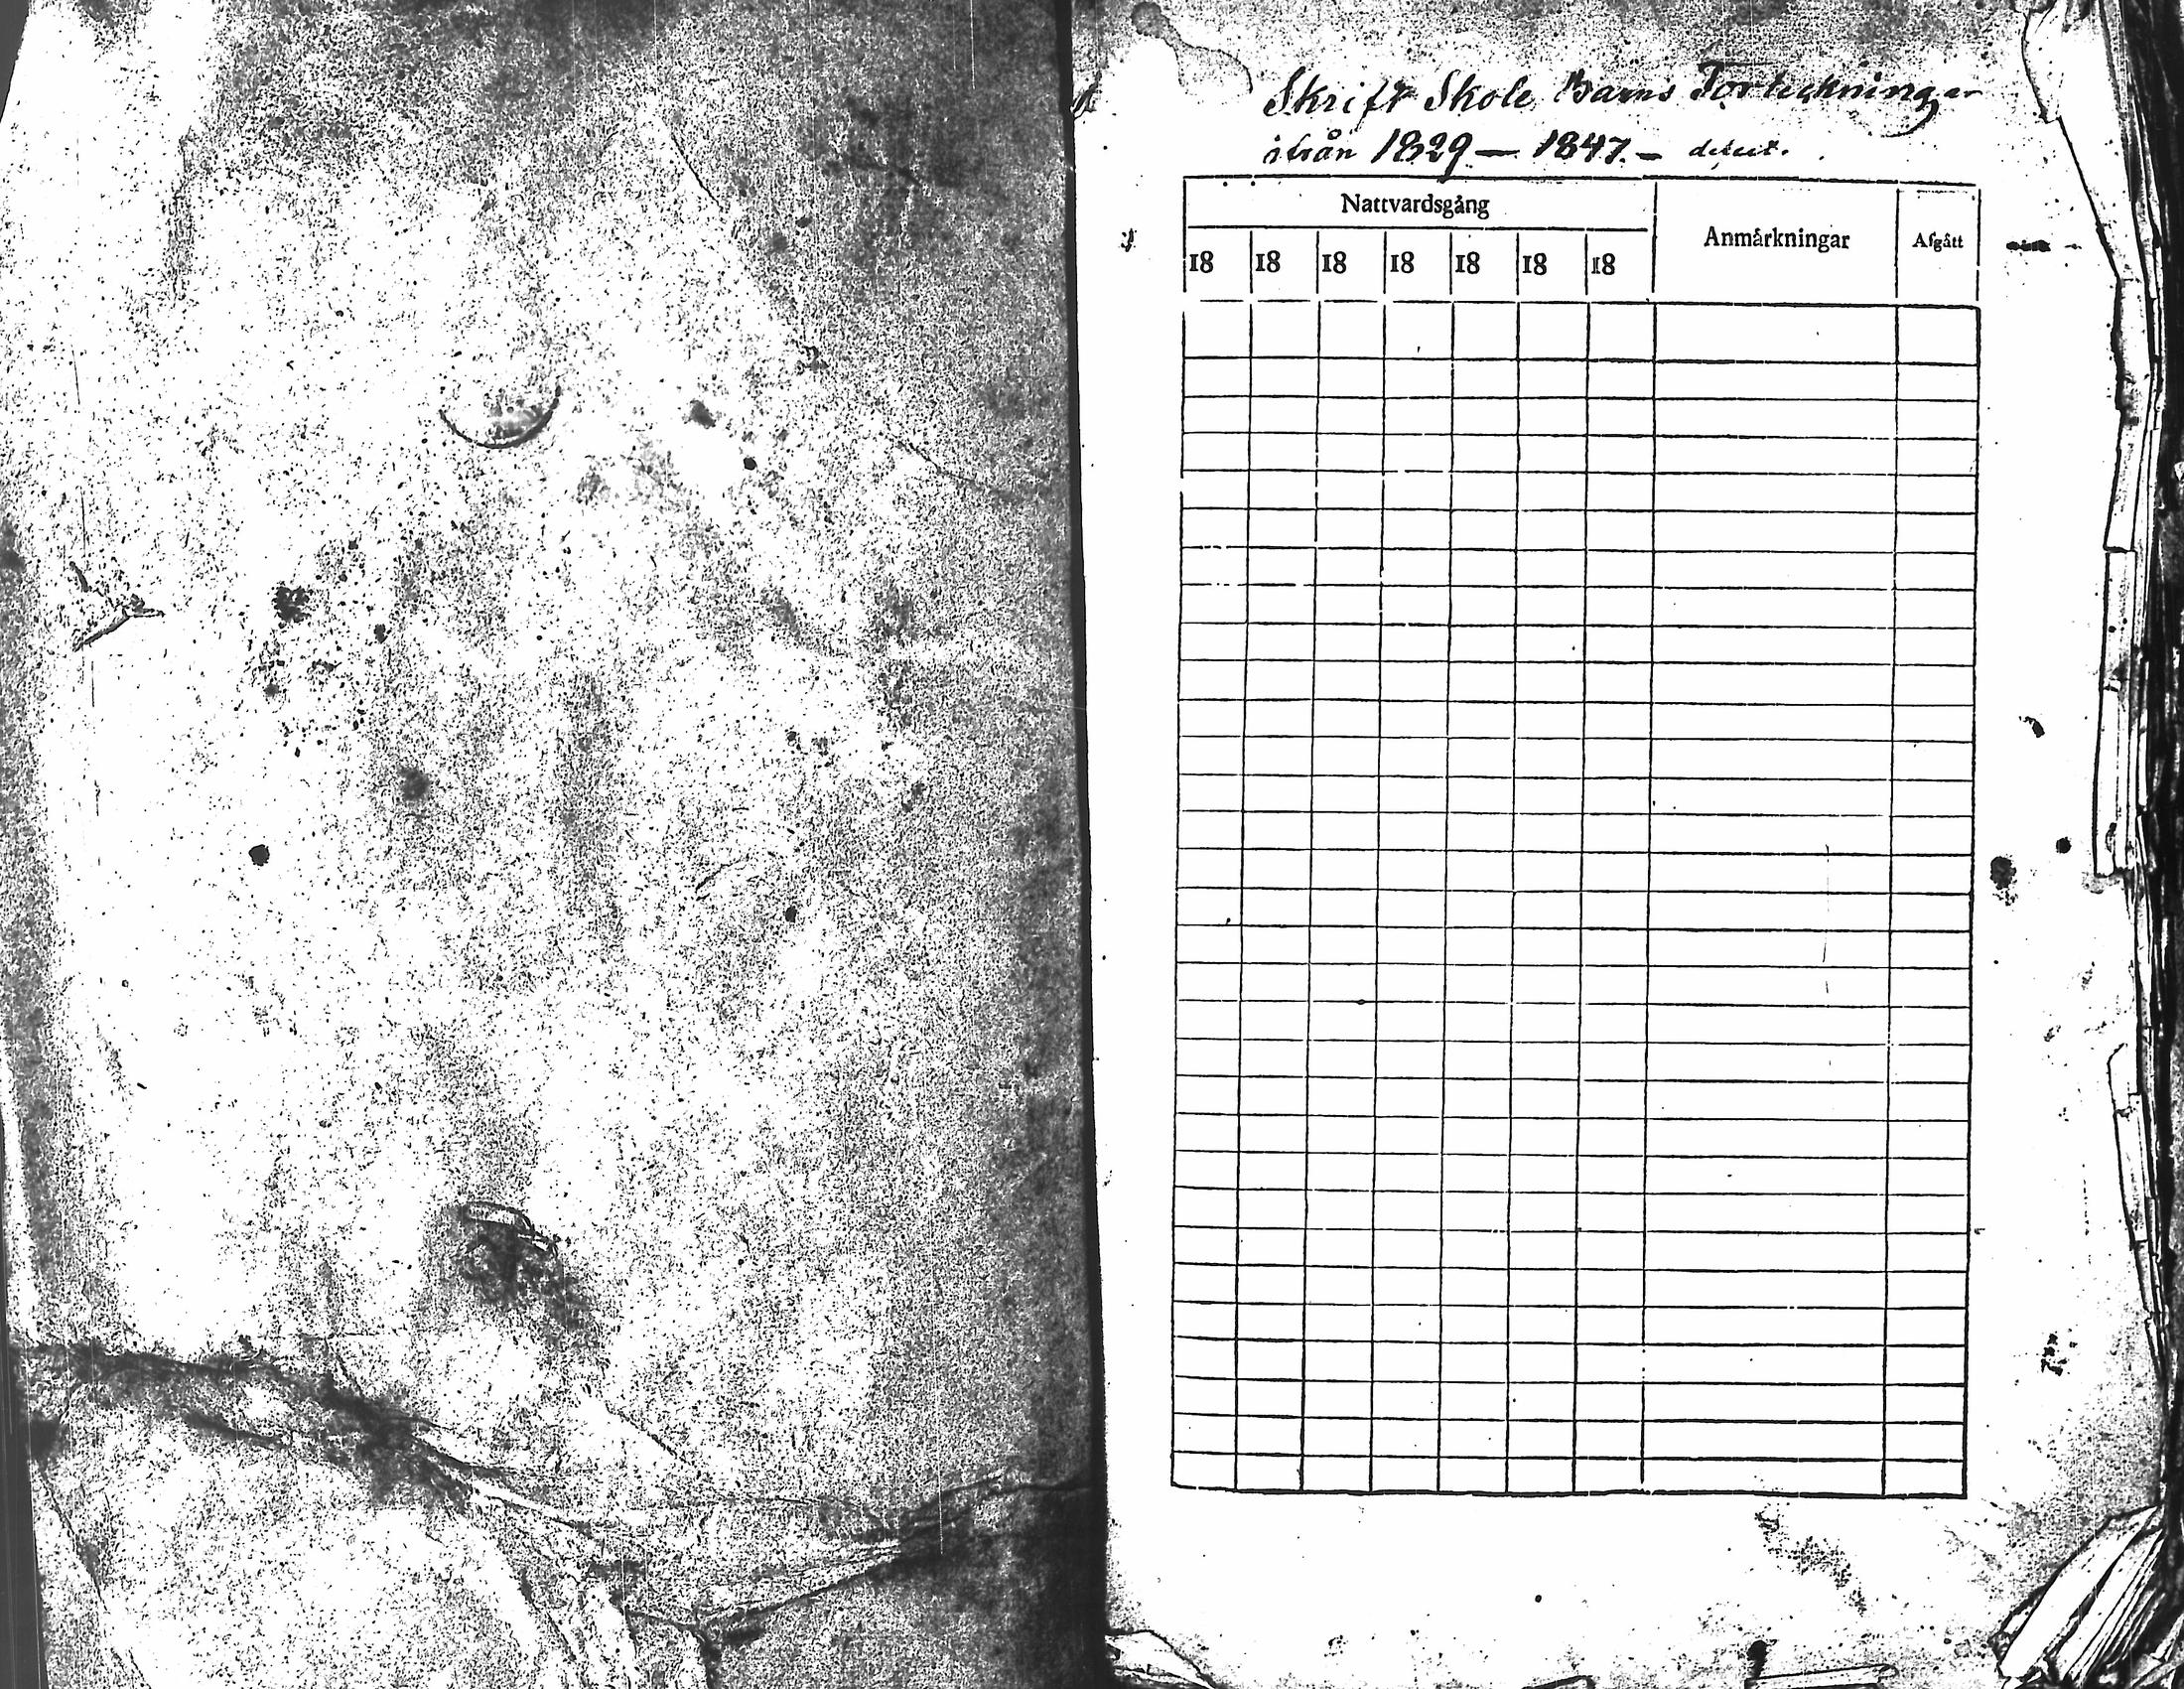 Skrift Skole Barns Förtekningar
ifrån 1829 — 1847. —
Nattvardsgång
Anmärkningar
Afgått
18 18 18 18 18 18 18